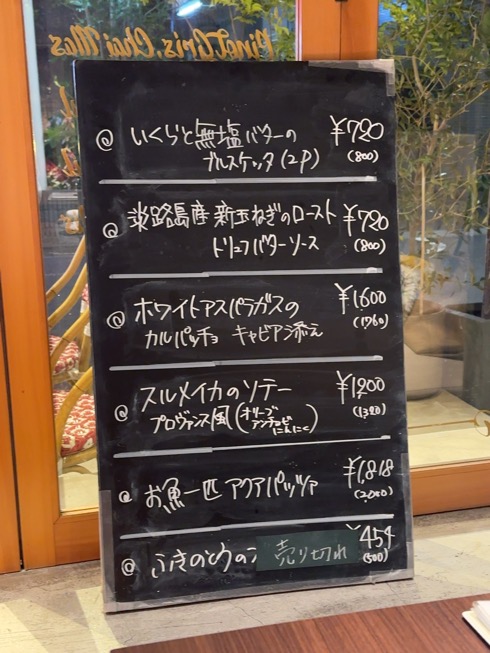 Pinot Gris. Chai Mas
@ いくらと無塩バターの ¥720
ブルスケッタ(2P) (800)
@ 淡路島産 新玉ねぎのロースト ¥720
トリュフバターソース (800)
@ ホワイトアスパラガスの ¥1,600
カルパッチョ キャビア添え (1760)
@ スルメイカのソテー ¥1,200
プロヴァンス風(オリーブ (1320)
アンチョビ
にんにく)
@ お魚一匹 アクアパッツァ ¥1,818
(2,000)
@ ふきのとうの 売り切れ ¥454
(500)